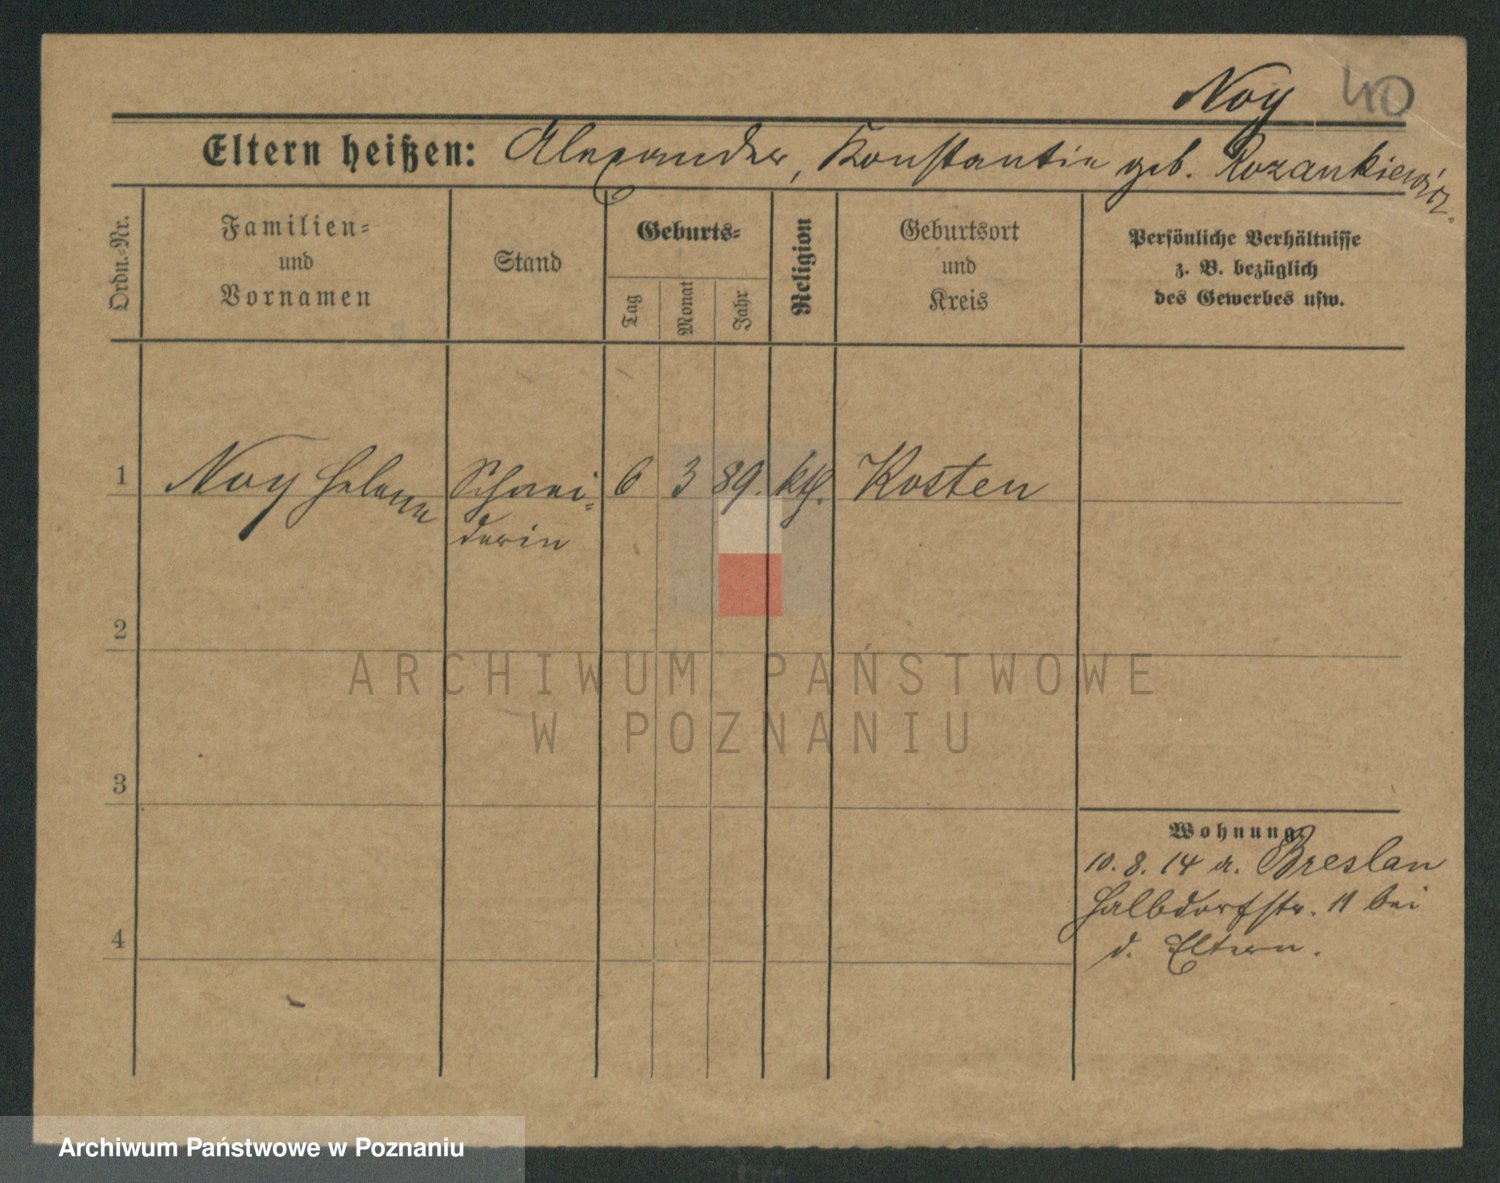 Noy 40
Eltern heißen: Alexander, Konstantin geb. Rozankiewicz.
Ordn.-Nr.
Familien-
und
Vornamen
Stand
Geburts-
Tag
Monat
Jahr
Religion
Geburtsort
und
Kreis
Persönliche Verhältnisse
z. B. bezüglich
des Gewerbes usw.
1 Noy Helene Schnei- 6 3 89. kth. Kosten
derin
2
ARCHIWUM PAŃSTWOWE
W POZNANIU
3
Wohnung:
10. 8. 14 n. Breslau
Halbdorfstr. 11 bei
d. Eltern.
4
Archiwum Państwowe w Poznaniu